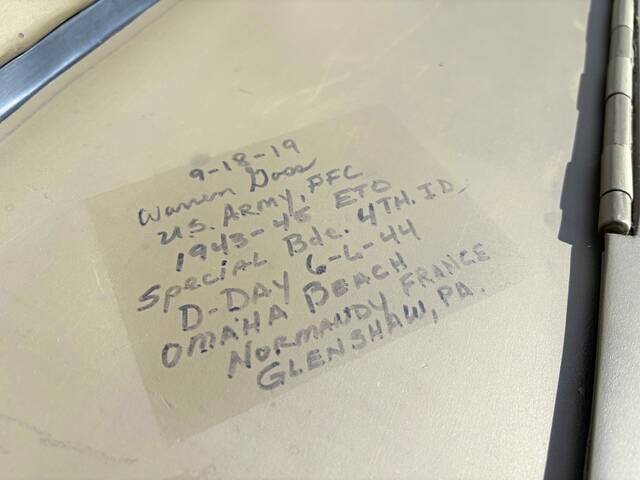 9-18-19
Warren Goss
U.S. ARMY, PFC
1943-45 ETO
Special Bde. 4TH. ID
D-DAY 6-6-44
OMAHA BEACH
NORMANDY FRANCE
GLENSHAW, PA.